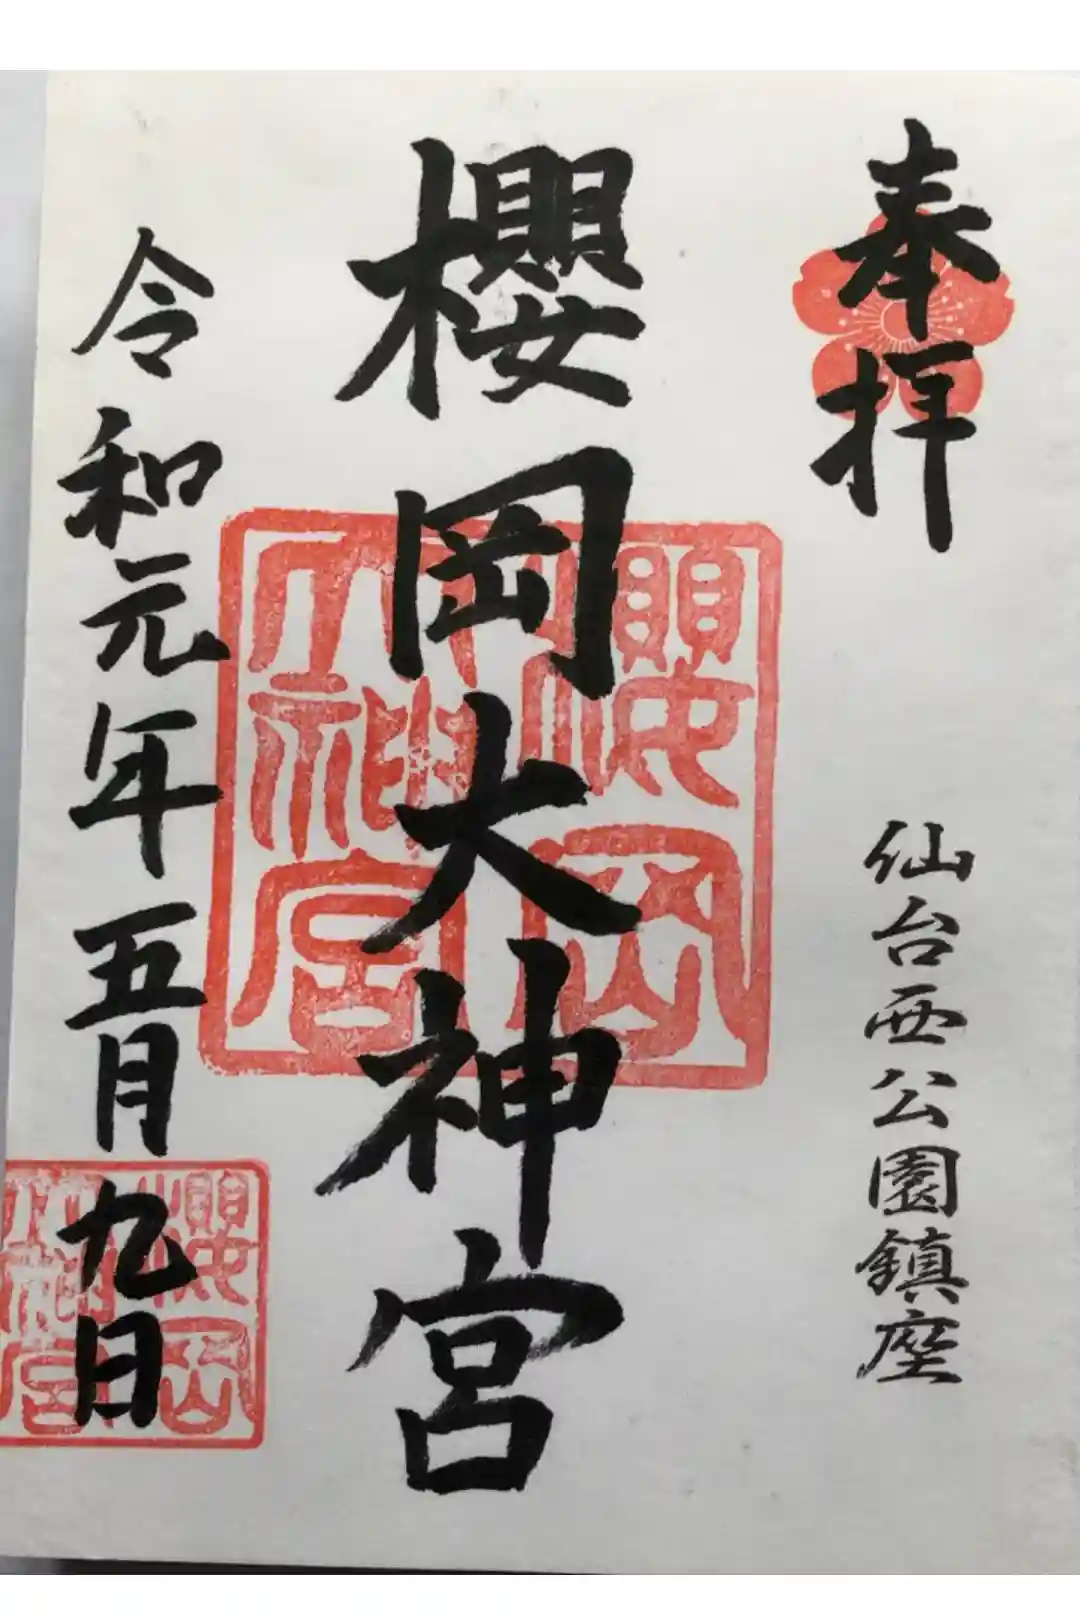 奉拝
仙台西公園鎮座
櫻岡大神宮
櫻岡
大神宮
令和元年五月九日
櫻岡
大神宮